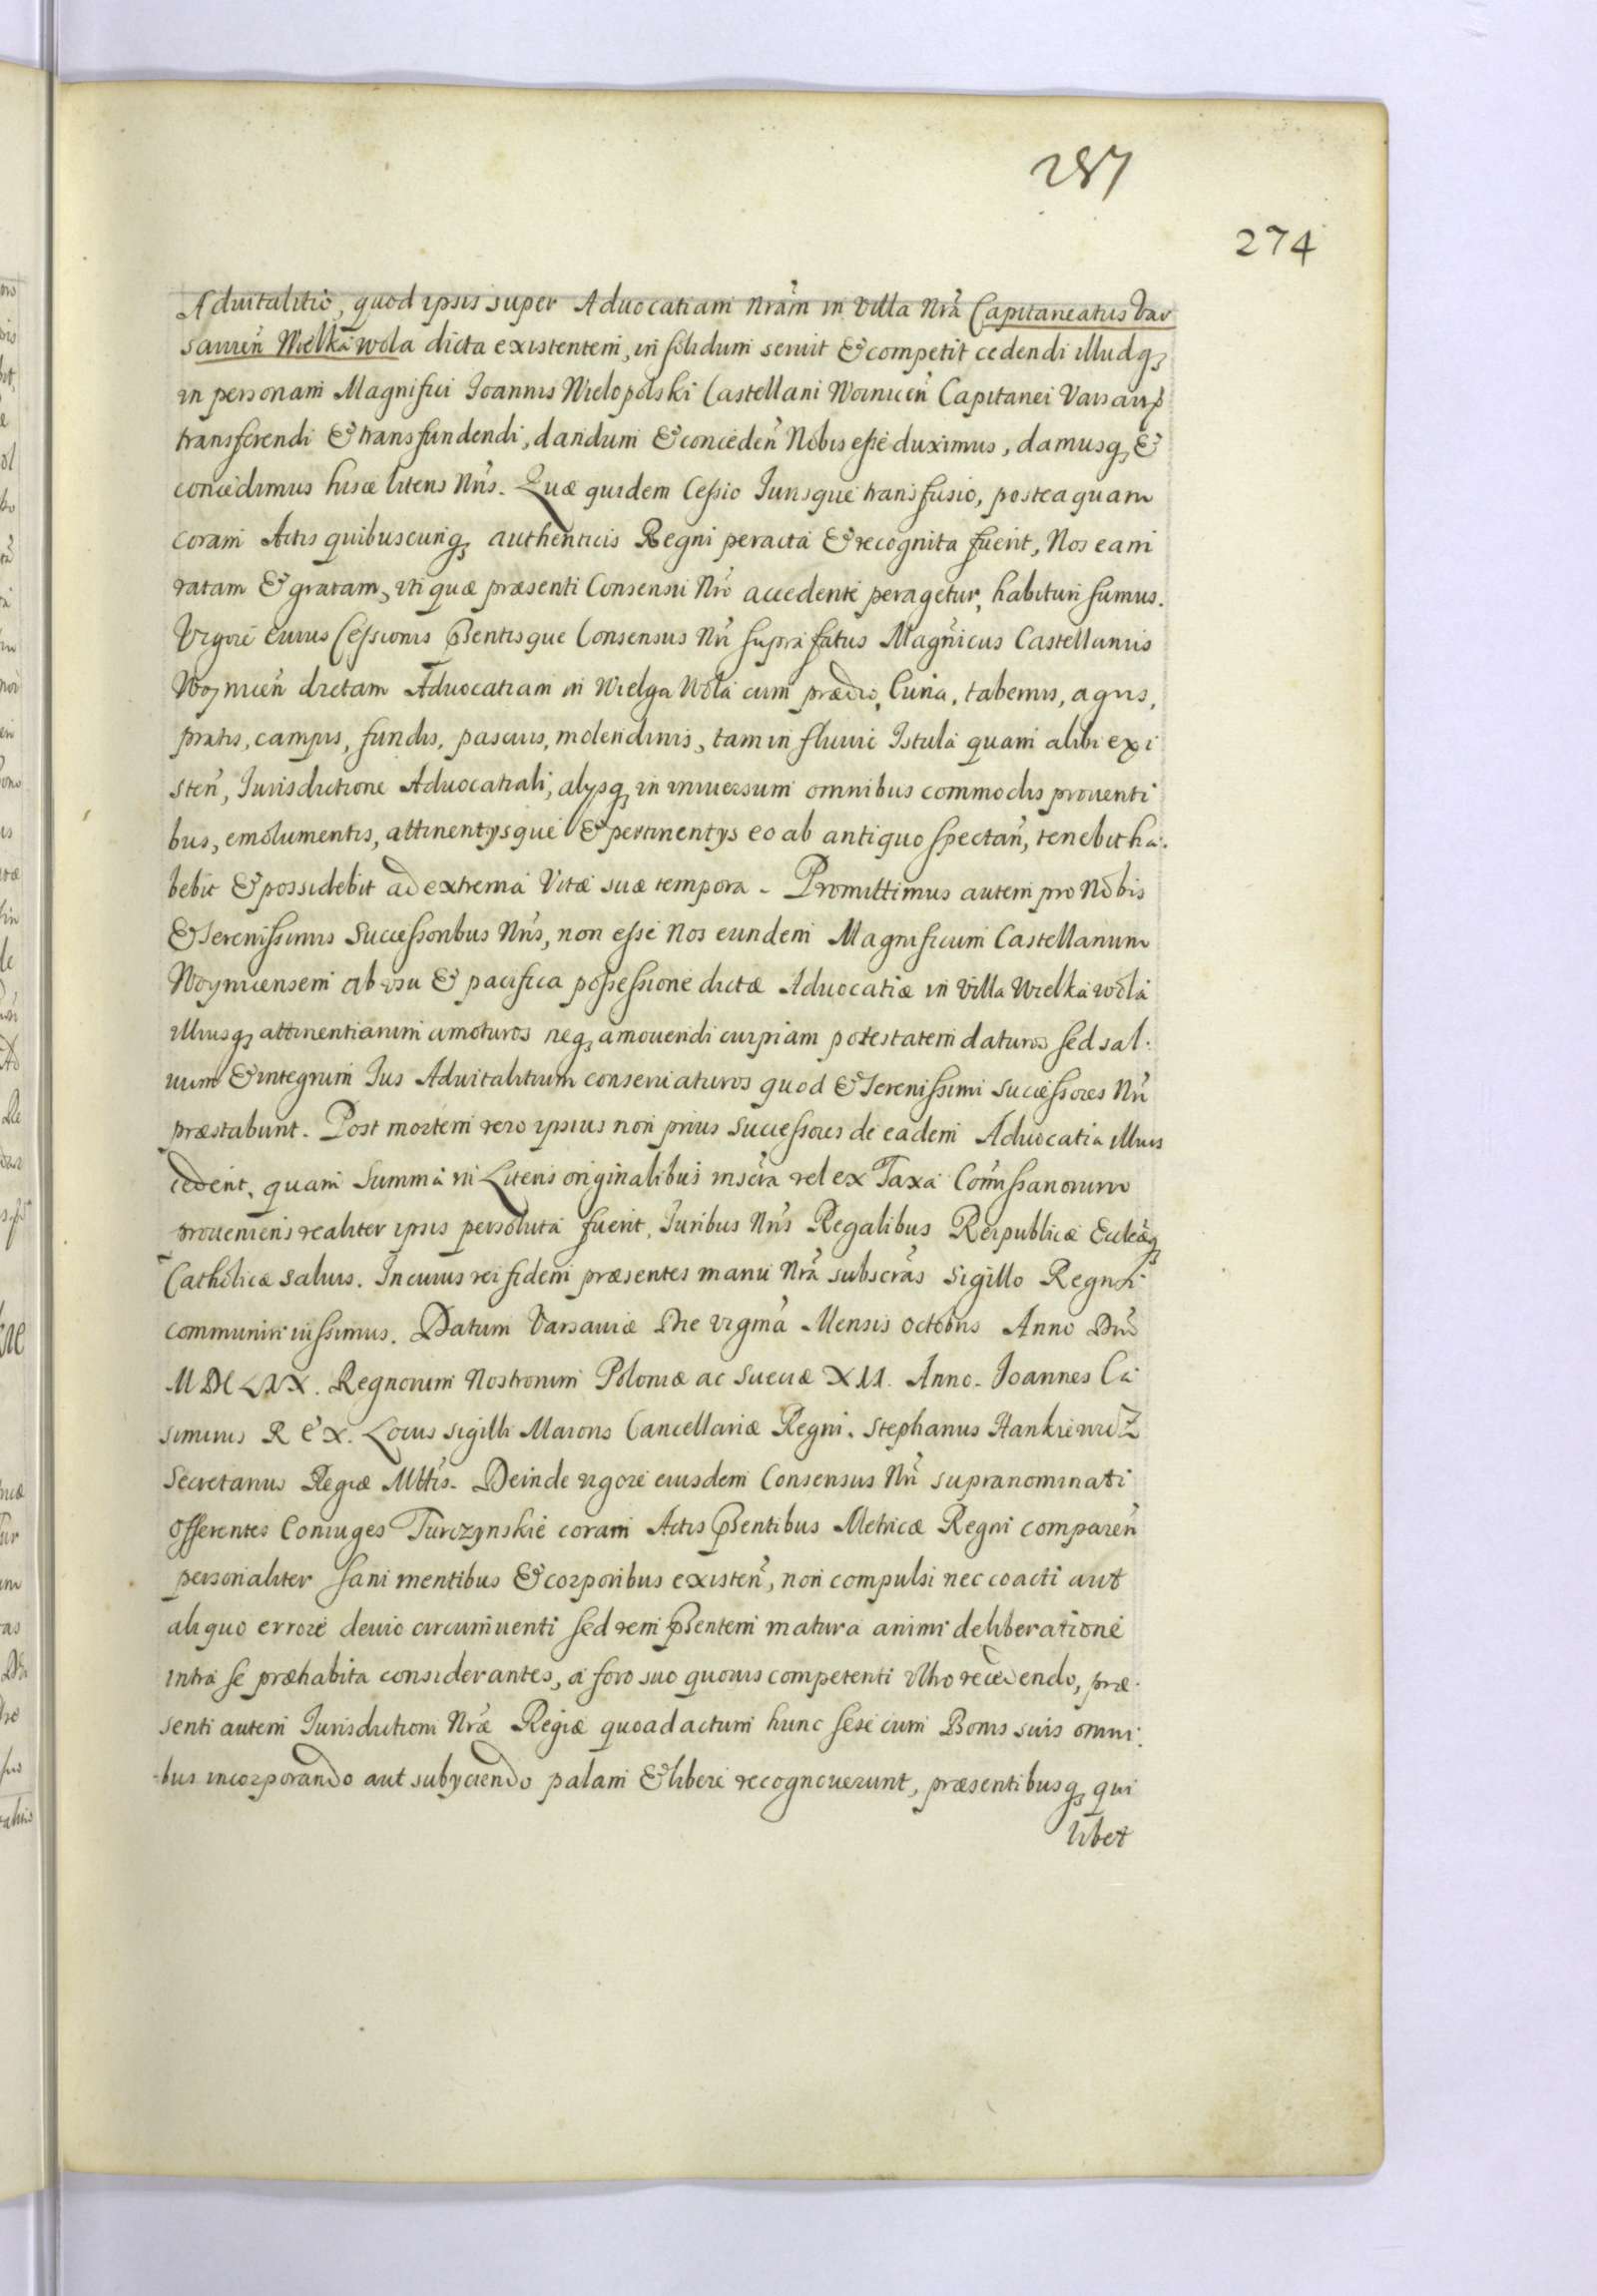 287
274
Aduitalitio, quod ipsis super Aduocatiam Nrãm in Villa Nrã Capitaneatus Var
sauien̄ Wielka wola dicta existentem, in solidum seruit & competit cedendi illudq₃
in personam Magnifici Joannis Wielopolski Castellani Woinicen̄ Capitanei Varsauien̄
transferendi & transfundendi, dandum & conceden̄ Nobis esse duximus, damusq₃ &
concedimus hisce literis Nrĩs. Quæ quidem Cessio Jurisque transfusio, posteaquam
coram Actis quibuscunq₃ authenticis Regni peracta & recognita fuerit, Nos eam
ratam & gratam, vti quæ præsenti Consensu Nrõ accedente peragetur, habituri sumus.
Vigore cuius Cessionis p̃sentisque Consensus Nrĩ suprafatus Magn̄icus Castellanus
Woynicen̄ dictam Aduocatiam in Wielga Wola cum prædio, Curia, tabernis, agris,
pratis, campis, fundis, pascuis, molendinis, tam in fluuio Istula quam alibi exi
sten̄, Jurisdictione Aduocatiali, alysq₃ in vniuersum omnibus commodis prouenti
bus, emolumentis, attinentysque & pertinentys eo ab antiquo spectan̄, tenebit ha
bebit & possidebit ad extrema Vitæ suæ tempora. Promittimus autem pro Nobis
& Serenissimis Successoribus Nrĩs, non esse Nos eundem Magnificum Castellanum
Woyniensem ab vsu & pacifica possessione dictæ Aduocatiæ in Villa Wielka wola
illiusq₃ attinentiarum amoturos neq₃ amouendi cuipiam potestatem daturos sed sal
uum & integrum Jus Aduitalitium conseruaturos quod & Serenissimi Successores Nrĩ
præstabunt. Post mortem vero ipsius non prius Successores de eadem Aduocatia illius
cedent, quam Summa in Literis originalibus inscr̃a vel ex Taxa Com̃issariorum
proueniens realiter ipsis persoluta fuerit, Juribus Nrĩs Regalibus Reipublicæ Eccleæq₃
Catholicæ saluis. In cuius rei fidem præsentes manu Nrã subscrãs Sigillo Regni
communiri iussimus. Datum Varsauiæ Die vigm̃a Mensis Octobris Anno Dnĩ
MDCLIX. Regnorum Nostrorum Poloniæ ac Sueciæ XII. Anno. Joannes Ca
simirus REX. Locus Sigilli Maioris Cancellariæ Regni. Stephanus Hankiewicz
Secretarius Regiæ Mttis. Deinde vigore eiusdem Consensus Nrĩ supranominati
offerentes Coniuges Turczynskie coram Actis p̃sentibus Metricæ Regni comparen̄
personaliter sani mentibus & corporibus existen̄, non compulsi nec coacti aut
aliquo errore deuio circumuenti sed rem p̃sentem matura animi deliberatione
intra se præhabita considerantes, a foro suo quouis competenti vltro recedendo, præ
senti autem Jurisdictioni Nrã Regiæ quoad actum hunc sese cum Bonis suis omni
bus incorporando aut subyciendo palam & libere recognouerunt, præsentibusq₃ qui
libet